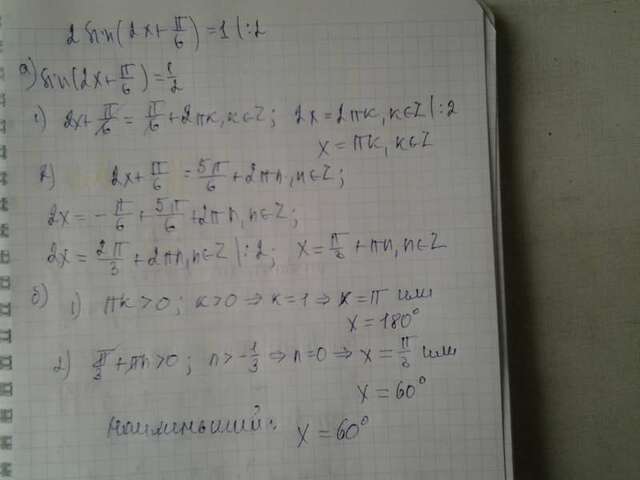 2 sin(2x+π/6)=1 |:2
а) sin(2x+π/6)=1/2
1) 2x+π/6=π/6+2πk, k∈Z; 2x=2πk, k∈Z |:2
x=πk, k∈Z
2) 2x+π/6=5π/6+2πn, n∈Z;
2x=-π/6+5π/6+2πn, n∈Z;
2x=2π/3+2πn, n∈Z |:2; x=π/3+πn, n∈Z
б) 1) πk>0; k>0 ⇒ k=1 ⇒ x=π или
x=180°
2) π/3+πn>0; n>-1/3 ⇒ n=0 ⇒ x=π/3 или
x=60°
Наименьший: x=60°